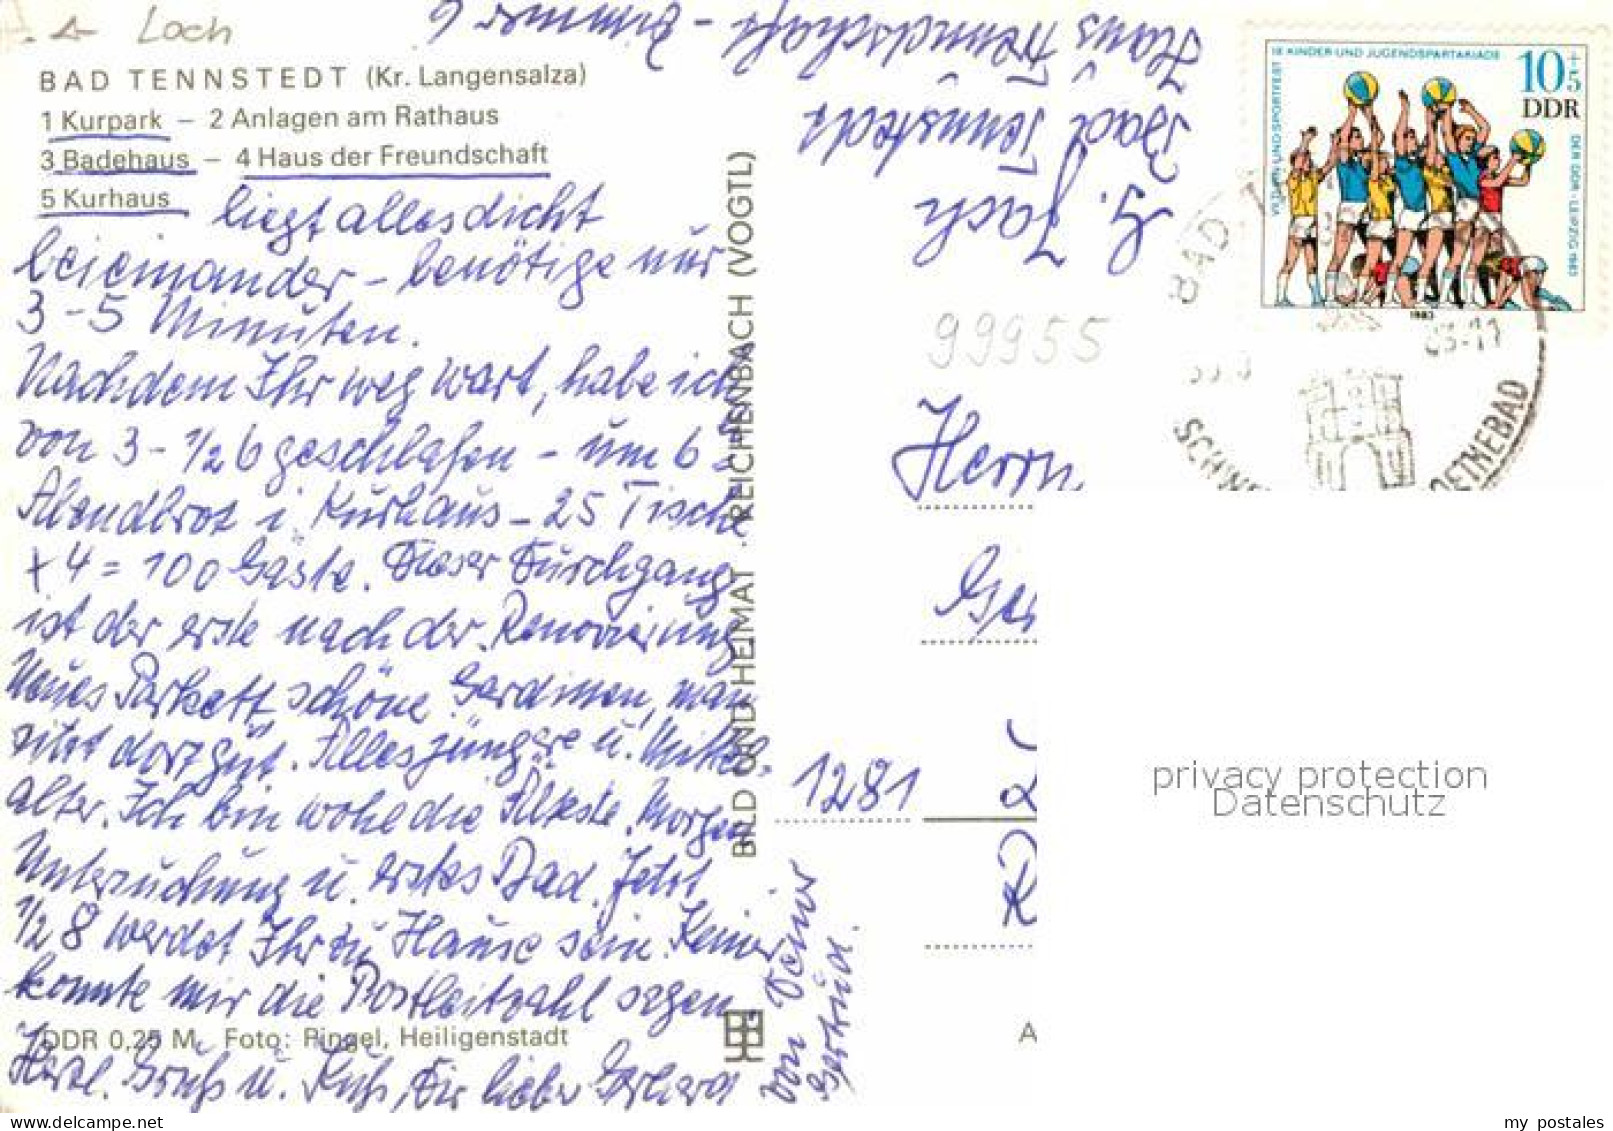 Loch
BAD TENNSTEDT (Kr. Langensalza)
1 Kurpark – 2 Anlagen am Rathaus
3 Badehaus – 4 Haus der Freundschaft
5 Kurhaus
liegt alles dicht
beieinander – benötige nur
3–5 Minuten.
Nachdem Ihr weg wart, habe ich
von 3–1/2 6 geschlafen – um 6
Abendbrot i. Kurhaus – 25 Tische
x 4 = 100 Gäste. Dieser Durchgang
ist der erste nach der Renovierung
Neues Parkett schöne Gardinen, man
sitzt dort gut. Alles jüngere u. Mittel-
alter. Ich bin wohl die Älteste. Morgen
Untersuchung u. erstes Bad. Jetzt
1/2 8 werdet Ihr zu Hause sein. Keiner
konnte mir die Postleitzahl sagen
Herzl. Gruß u. Kuß, Dir lieber Gerhard
von Deiner
Gertrud.
DDR 0,25 M Foto: Ringel, Heiligenstadt
BILD UND HEIMAT · REICHENBACH (VOGTL)
Bad Tennstedt
Haus Freundschaft – Zimmer 6
99955
Herrn
1281
A
IX KINDER-UND JUGENDSPARTAKIADE
VII TURN-UND SPORTFEST
DER DDR · LEIPZIG 1983
10+5
DDR
1983
BAD T
SCHWE
OETHEBAD
-11
privacy protection
Datenschutz
my postales